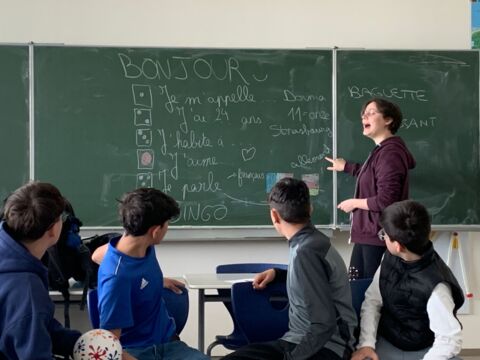 BONJOUR
Je m'appelle ... Douma
J'ai 24 ans 11=onze
J'habite à ... Strasbourg
J'aime
Je parle français allemand
BINGO
BAGUETTE